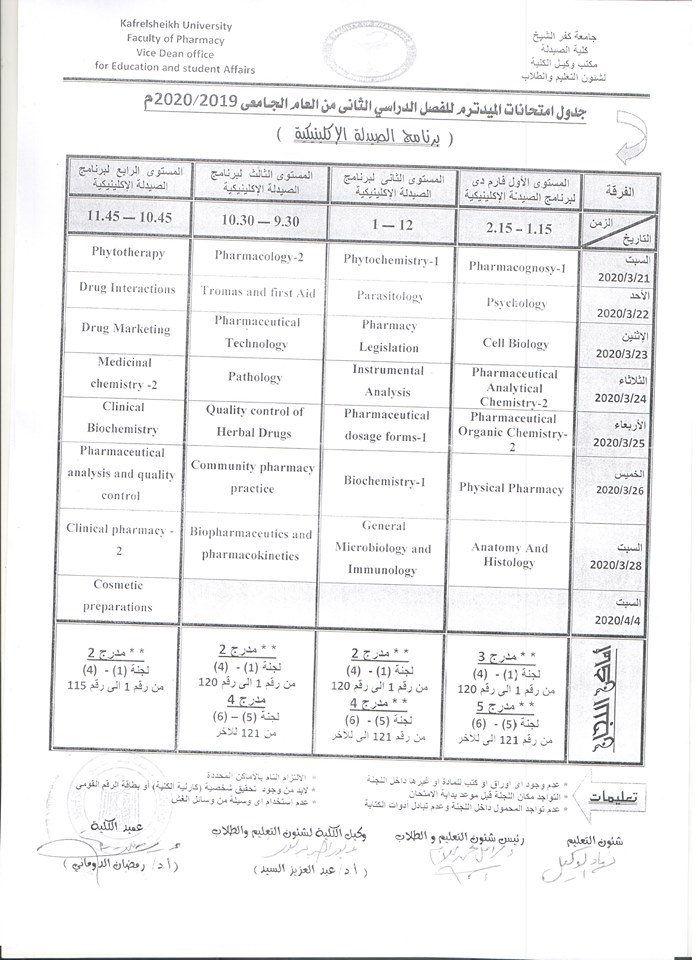 Kafrelsheikh University
Faculty of Pharmacy
Vice Dean office
for Education and student Affairs
جامعة كفر الشيخ
كلية الصيدلة
مكتب وكيل الكلية
لشئون التعليم والطلاب
جدول امتحانات الميدترم للفصل الدراسي الثانى من العام الجامعى 2020/2019م
( برنامج الصيدلة الإكلينيكية )
الفرقة
المستوى الأول فارم دى
لبرنامج الصيدلة الإكلينيكية
المستوى الثانى لبرنامج
الصيدلة الإكلينيكية
المستوى الثالث لبرنامج
الصيدلة الإكلينيكية
المستوى الرابع لبرنامج
الصيدلة الإكلينيكية
الزمن
التاريخ
2.15 – 1.15
1 — 12
10.30 — 9.30
11.45 — 10.45
السبت
2020/3/21
Pharmacognosy-1
Phytochemistry-1
Pharmacology-2
Phytotherapy
الأحد
2020/3/22
Psychology
Parasitology
Tromas and first Aid
Drug Interactions
الإثنين
2020/3/23
Cell Biology
Pharmacy
Legislation
Pharmaceutical
Technology
Drug Marketing
الثلاثاء
2020/3/24
Pharmaceutical
Analytical
Chemistry-2
Instrumental
Analysis
Pathology
Medicinal
chemistry -2
الأربعاء
2020/3/25
Pharmaceutical
Organic Chemistry-
2
Pharmaceutical
dosage forms-1
Quality control of
Herbal Drugs
Clinical
Biochemistry
الخميس
2020/3/26
Physical Pharmacy
Biochemistry-1
Community pharmacy
practice
Pharmaceutical
analysis and quality
control
السبت
2020/3/28
Anatomy And
Histology
General
Microbiology and
Immunology
Biopharmaceutics and
pharmacokinetics
Clinical pharmacy -
2
السبت
2020/4/4
Cosmetic
preparations
** مدرج 3
لجنة (1) - (4)
من رقم 1 الى رقم 120
** مدرج 5
لجنة (5) - (6)
من رقم 121 للآخر
** مدرج 2
لجنة (1) - (4)
من رقم 1 الى رقم 120
** مدرج 4
لجنة (5) - (6)
من رقم 121 للآخر
** مدرج 2
لجنة (1) - (4)
من رقم 1 الى رقم 120
مدرج 4
لجنة (5) – (6)
من 121 للآخر
** مدرج 2
لجنة (1) - (4)
من رقم 1 الى رقم 115
تعليمات
* عدم وجود اى اوراق او كتب للمادة او غيرها داخل اللجنة
* التواجد مكان اللجنة قبل موعد بداية الامتحان
* عدم تواجد المحمول داخل اللجنة وعدم تبادل أدوات الكتابة
* الالتزام التام بالاماكن المحددة
* لابد من وجود تحقيق شخصية (كارنية الكلية) أو بطاقة الرقم القومى
* عدم استخدام اى وسيلة من وسائل الغش
شئون التعليم
رئيس شئون التعليم و الطلاب
وكيل الكلية لشئون التعليم والطلاب
(أ.د/ عبد العزيز السيد)
عميد الكلية
(أ.د/ رمضان الدوماني)